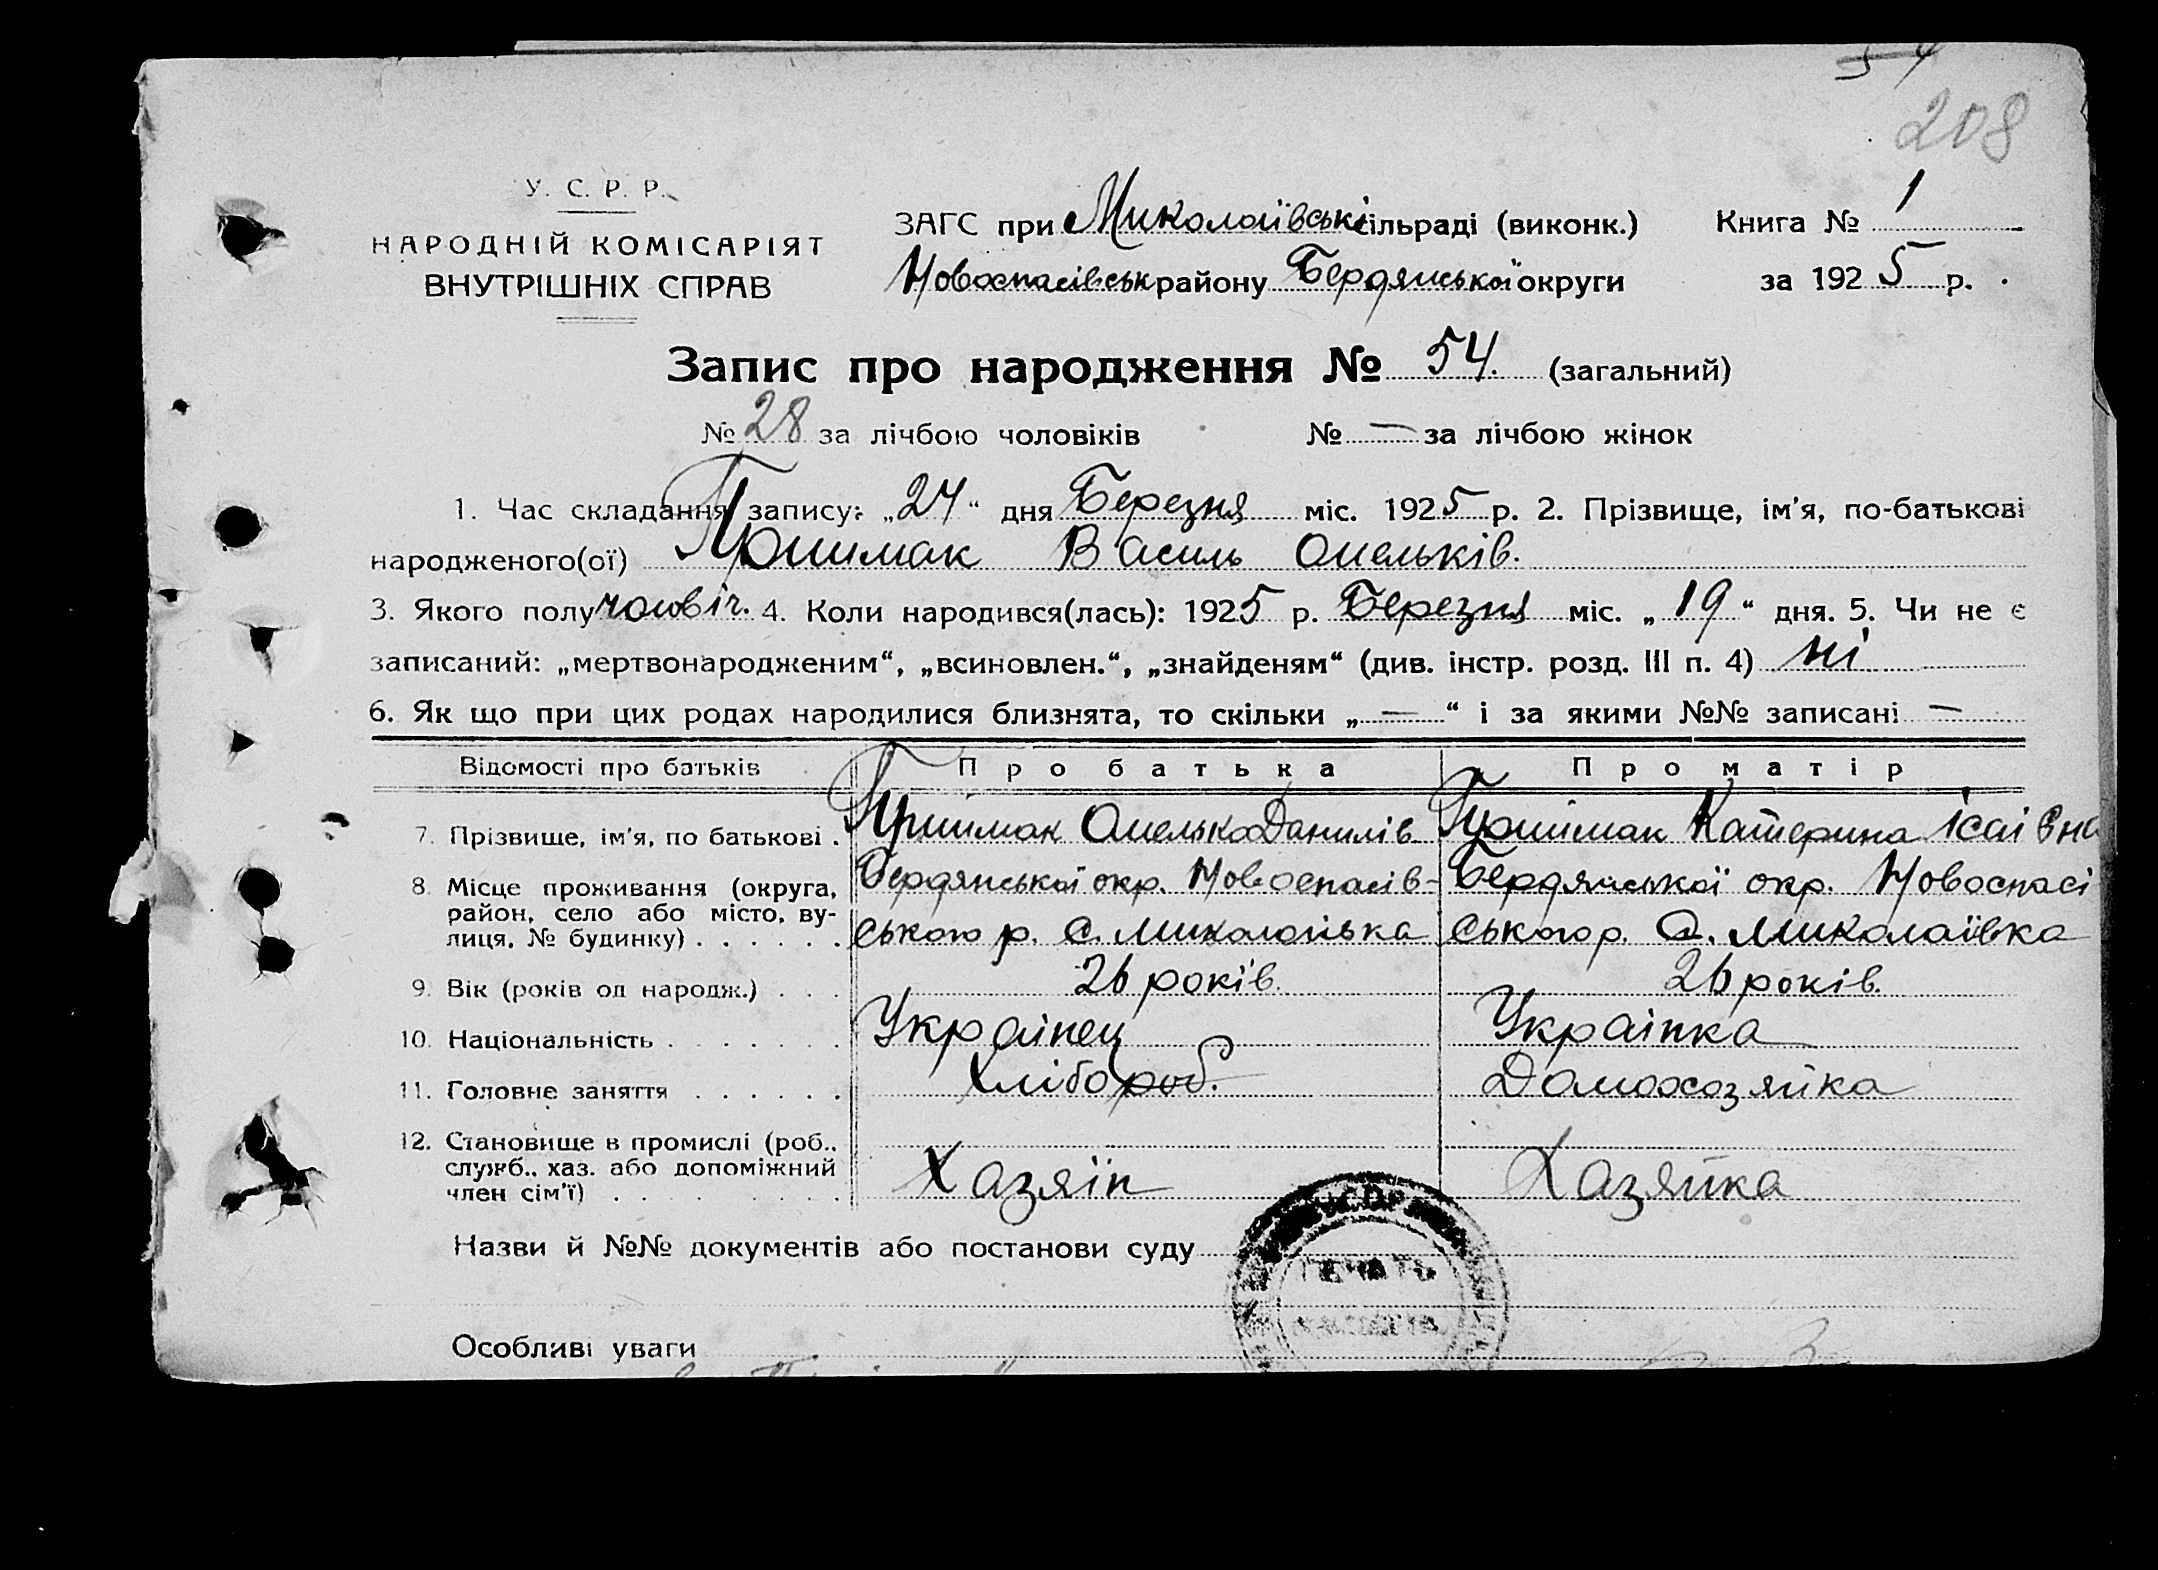 54
208
У. С. Р. Р.
НАРОДНІЙ КОМІСАРІЯТ
ВНУТРІШНІХ СПРАВ
ЗАГС при Миколаївські сільраді (виконк.) Книга № 1
Новоспасівськ району Бердянської округи за 1925 р.
Запис про народження № 54. (загальний)
№ 28 за лічбою чоловіків № — за лічбою жінок
1. Час складання запису: „24“ дня Березня міс. 1925 р. 2. Прізвище, ім'я, по-батькові
народженого(ої) Приймак Василь Омельків.
3. Якого полу чоловіч. 4. Коли народився(лась): 1925 р. Березня міс. „19“ дня. 5. Чи не є
записаний: „мертвонародженим“, „всиновлен.“, „знайденям“ (див. інстр. розд. III п. 4) ні
6. Як що при цих родах народилися близнята, то скільки „—“ і за якими №№ записані —
Відомості про батьків Про батька Про матір
7. Прізвище, ім'я, по батькові . Приймак Омелько Данилів Приймак Катерина Ісаівна
8. Місце проживання (округа, Бердянської окр. Новоспасів- Бердянської окр. Новоспасі
район, село або місто, ву-
лиця, № будинку) . . . . . . ського р. с. Миколаївка ського р. С. Миколаївка
9. Вік (років од народж.) . . . 26 років. 26 років.
10. Національність . . . . . . . Українец Українка
11. Головне заняття . . . . . . Хлібороб. Домохозяйка
12. Становище в промислі (роб.,
служб., хаз. або допоміжний Хазяїн Хазяйка
член сім'ї) . . . . . . . .
Назви й №№ документів або постанови суду
ПЕЧАТЬ
Особливі уваги